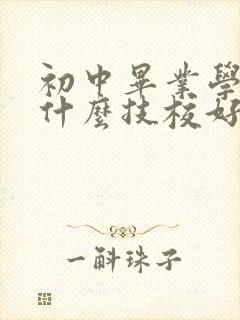 初中畢業學
什麼技校好
一斛珠子